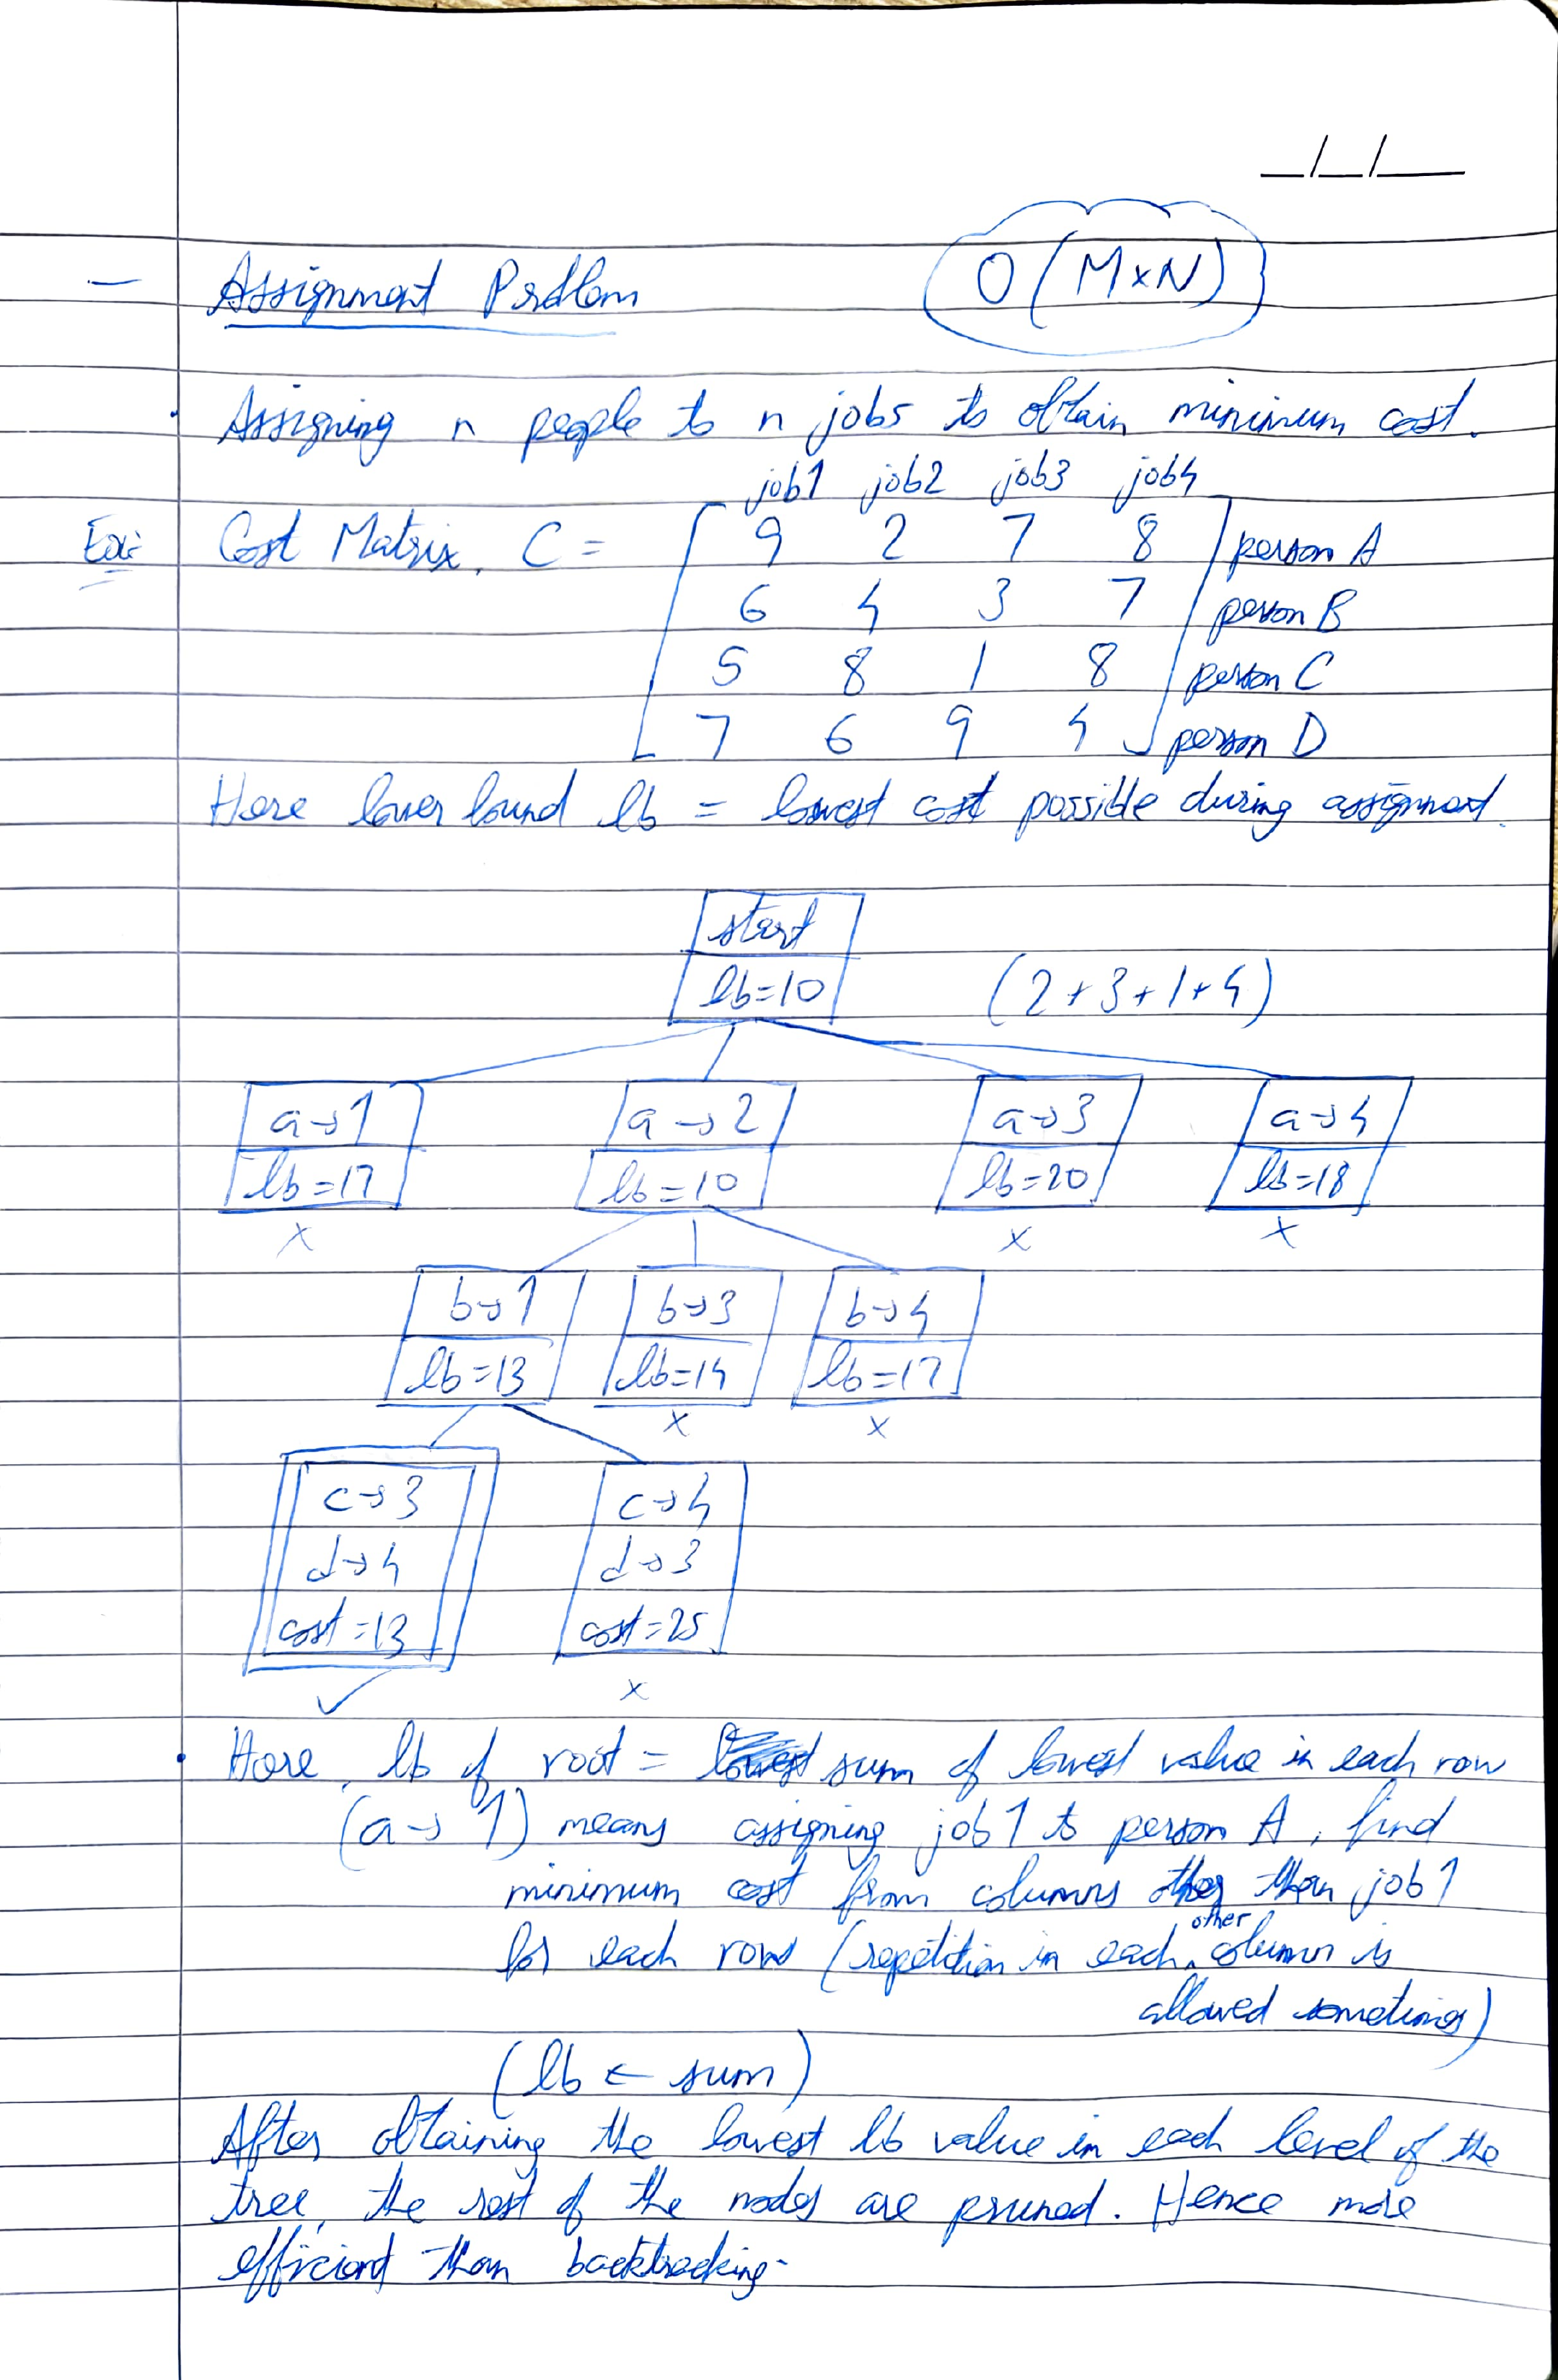 _/_/_
— Assignment Problem O(M×N)
· Assigning n people to n jobs to obtain minimum cost.
job1 job2 job3 job4
Ex:- Cost Matrix, C = [ 9 2 7 8 ] person A
6 4 3 7 person B
5 8 1 8 person C
7 6 9 4 person D
Here lower bound lb = lowest cost possible during assignment.
start
lb=10 (2+3+1+4)
a→1 a→2 a→3 a→4
lb=17 lb=10 lb=20 lb=18
x x x
b→1 b→3 b→4
lb=13 lb=14 lb=17
x x
c→3 c→4
d→4 d→3
cost=13 cost=25
✓ x
· Here, lb of root = sum of lowest value in each row
(a→1) means assigning job1 to person A, find
minimum cost from columns other than job1
for each row (repetition in each other column is
allowed sometimes)
(lb ← sum)
After obtaining the lowest lb value in each level of the
tree, the rest of the nodes are pruned. Hence more
efficient than backtracking.